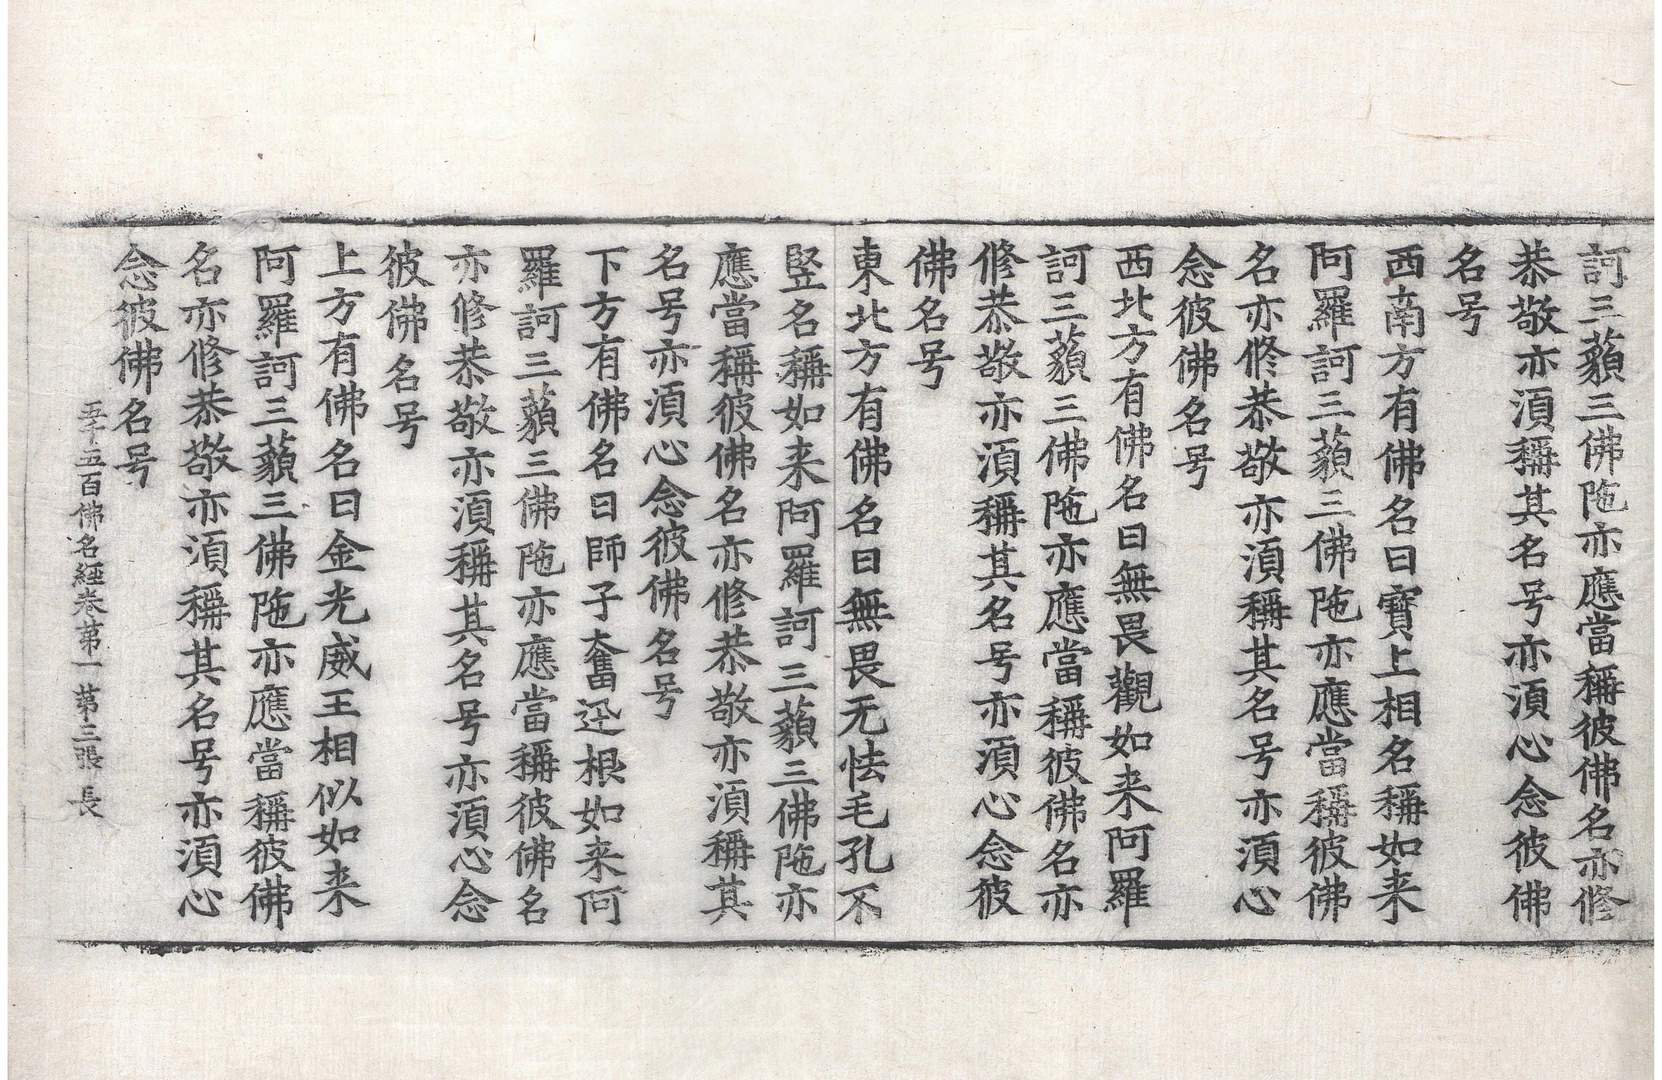 訶三藐三佛陁亦應當稱彼佛名亦修
恭敬亦湏稱其名号亦湏心念彼佛
名号
西南方有佛名曰寶上相名稱如来
阿羅訶三藐三佛陁亦應當稱彼佛
名亦修恭敬亦湏稱其名号亦湏心
念彼佛名号
西北方有佛名曰無畏觀如来阿羅
訶三藐三佛陁亦應當稱彼佛名亦
修恭敬亦湏稱其名号亦湏心念彼
佛名号
東北方有佛名曰無畏无怯毛孔不
竪名稱如来阿羅訶三藐三佛陁亦
應當稱彼佛名亦修恭敬亦湏稱其
名号亦湏心念彼佛名号
下方有佛名曰師子奮迅根如来阿
羅訶三藐三佛陁亦應當稱彼佛名
亦修恭敬亦湏稱其名号亦湏心念
彼佛名号
上方有佛名曰金光威王相似如来
阿羅訶三藐三佛陁亦應當稱彼佛
名亦修恭敬亦湏稱其名号亦湏心
念彼佛名号
五千五百佛名經卷第一 第三張 長